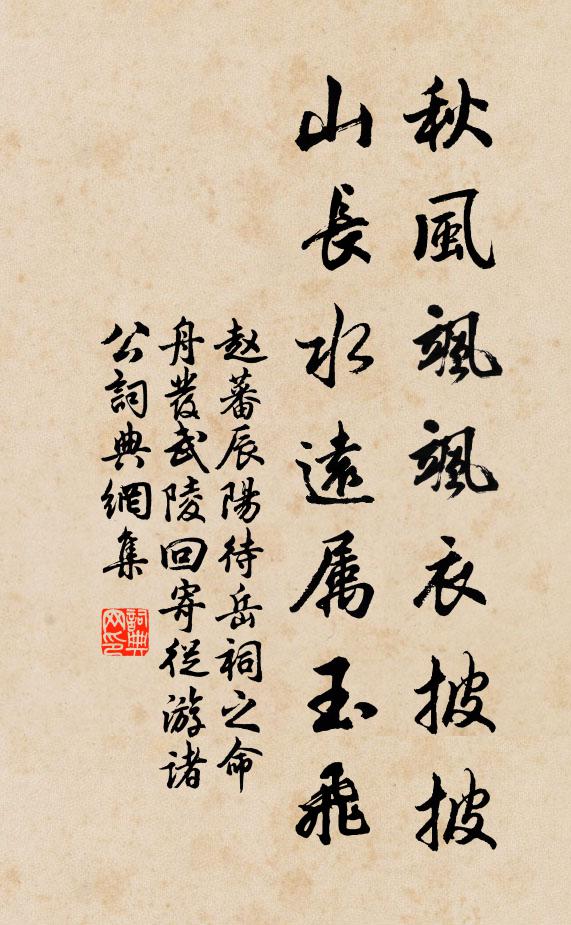 秋風颯颯衣披披
山長水遠属玉飛
赵蕃辰陽待岳祠之命
舟發武陵回寄從游諸
公詞典網集
詞典网印